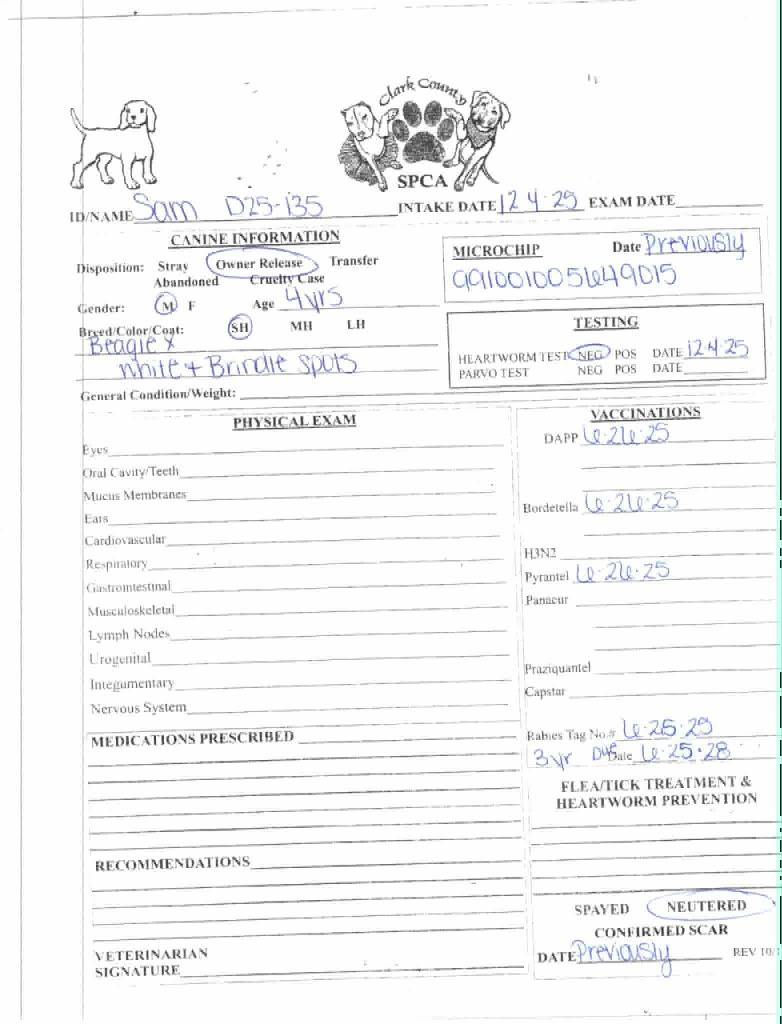 Clark County
SPCA
ID/NAME Sam D25-135 INTAKE DATE 12·4·25 EXAM DATE
CANINE INFORMATION
Disposition: Stray Owner Release Transfer
Abandoned Cruelty Case
Gender: M F Age 4yrs
Breed/Color/Coat: SH MH LH
Beagle x
White + Brindle Spots
General Condition/Weight:
MICROCHIP Date Previously
991001005649015
TESTING
HEARTWORM TEST NEG POS DATE 12·4·25
PARVO TEST NEG POS DATE
PHYSICAL EXAM
Eyes
Oral Cavity/Teeth
Mucus Membranes
Ears
Cardiovascular
Respiratory
Gastrointestinal
Musculoskeletal
Lymph Nodes
Urogenital
Integumentary
Nervous System
MEDICATIONS PRESCRIBED
RECOMMENDATIONS
VETERINARIAN
SIGNATURE
VACCINATIONS
DAPP 6·26·25
Bordetella 6·26·25
H3N2
Pyrantel 6·26·25
Panacur
Praziquantel
Capstar
Rabies Tag No.# 6·25·25
3yr Due Date 6·25·28
FLEA/TICK TREATMENT &
HEARTWORM PREVENTION
SPAYED NEUTERED
CONFIRMED SCAR
DATE Previously REV 10/